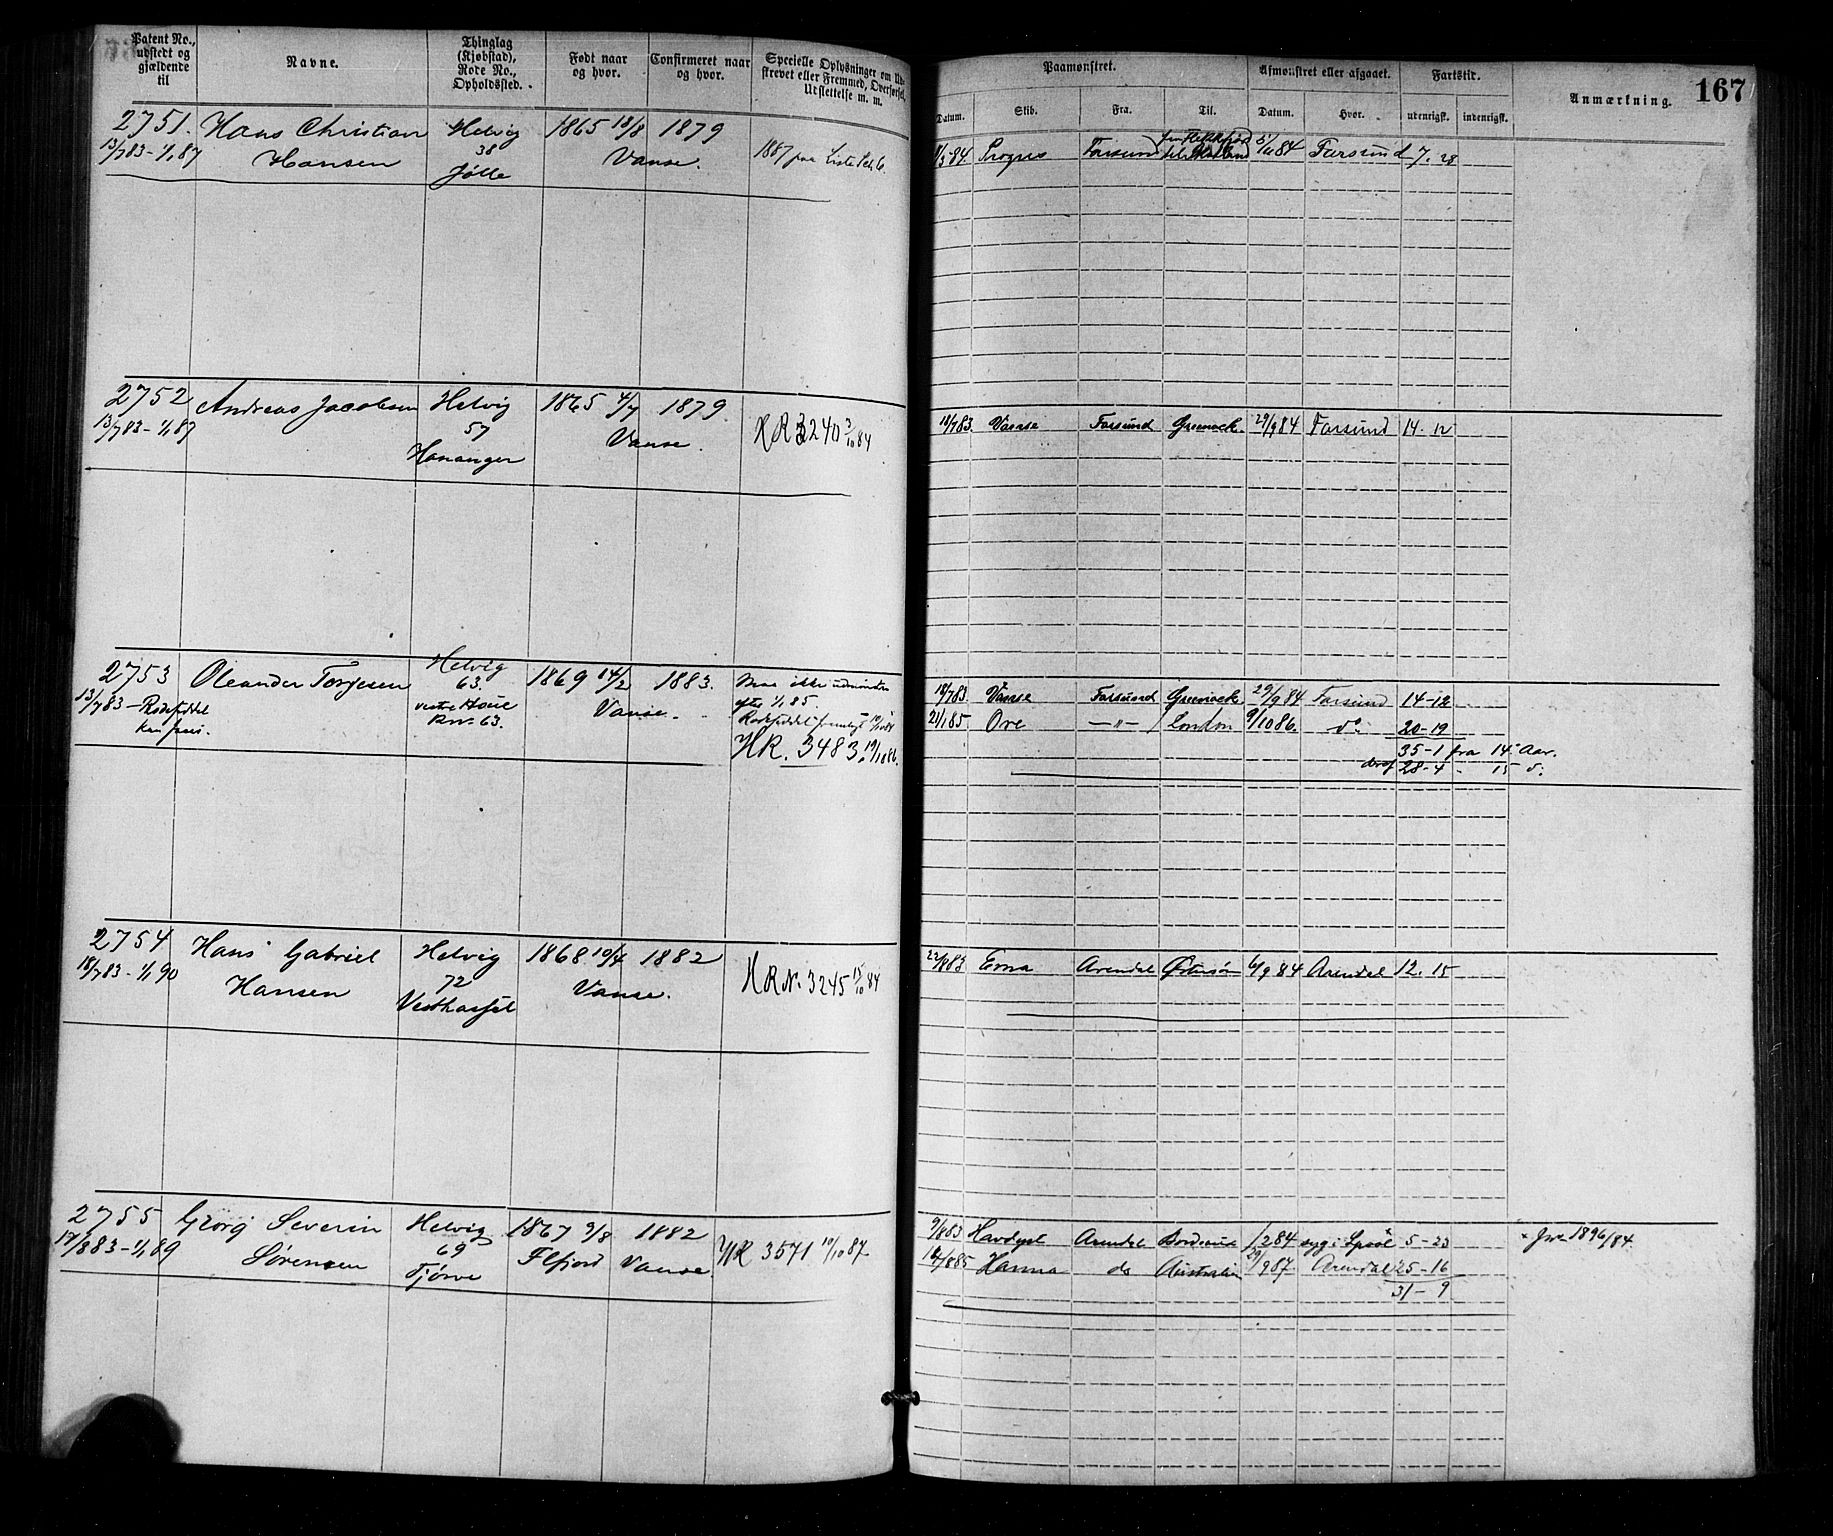 Patent No., udstedt og gjældende til
Navne.
Thinglag (Kjøbstad), Rode No., Opholdssted.
Født naar og hvor.
Confirmeret naar og hvor.
Specielle Oplysninger om Udskrevet eller Fremmed, Overførsel, Udslettelse m. m.
Paamønstret.
Afmønstret eller afgaaet.
Fartstid.
Anmærkning.
167
Datum.
Skib.
Fra.
Til.
Datum.
Hvor.
udenrigsk.
indenrigsk.
2751. Hans Christian Helvig 1865 18/8 1879
13/7 83 - 1/1 87 Hansen 38 Vanse. 1887 paa
Jølle
1/3 84 Progres Farsund 84 Farsund 7. 28
2752 Andreas Jacobsen Helvig 1865 4/7 1879
13/7 83 - 1/1 87 57 Vanse HR 3240 3/10 84
Hananger
18/7 83. Vanse Farsund Greenock 29/9 84 Farsund 14-12
2753 Oleander Torjesen Helvig 1869 14/2 1883. Maa ikke udmønstres
13/7 83 - 63. Vanse. efter 1/1 85.
Rno. 63.
HR. 3483. 19/10 86.
18/7 83. Vanse Farsund Greenock 29/9 84 Farsund 14-12
21/1 85 Ore —"— London 9/10 86. do 20-19
35-1 fra 14 Aar.
deraf 28-4 - 15 d:
2754 Hans Gabriel Helvig 1868 10/4 1882
18/7 83 - 1/1 90 Hansen 72 Vanse. HR N. 3245 15/10 84
Vesthassel
83 Erna Arendal 6/9 84 Arendal 12. 15
2755 Georg Severin Helvig 1867 9/8 1882
17/8 83 - 1/1 89 Sørensen 69 Flfjord Vanse. HR 3571 19/10 87.
Tjørve
9/8 83 Havdyst Arendal Bordeaux 1/2 84 syg i 5-23 1896/84.
85 Hanna do Australien 29/9 87 Arendal 25-16
31-9